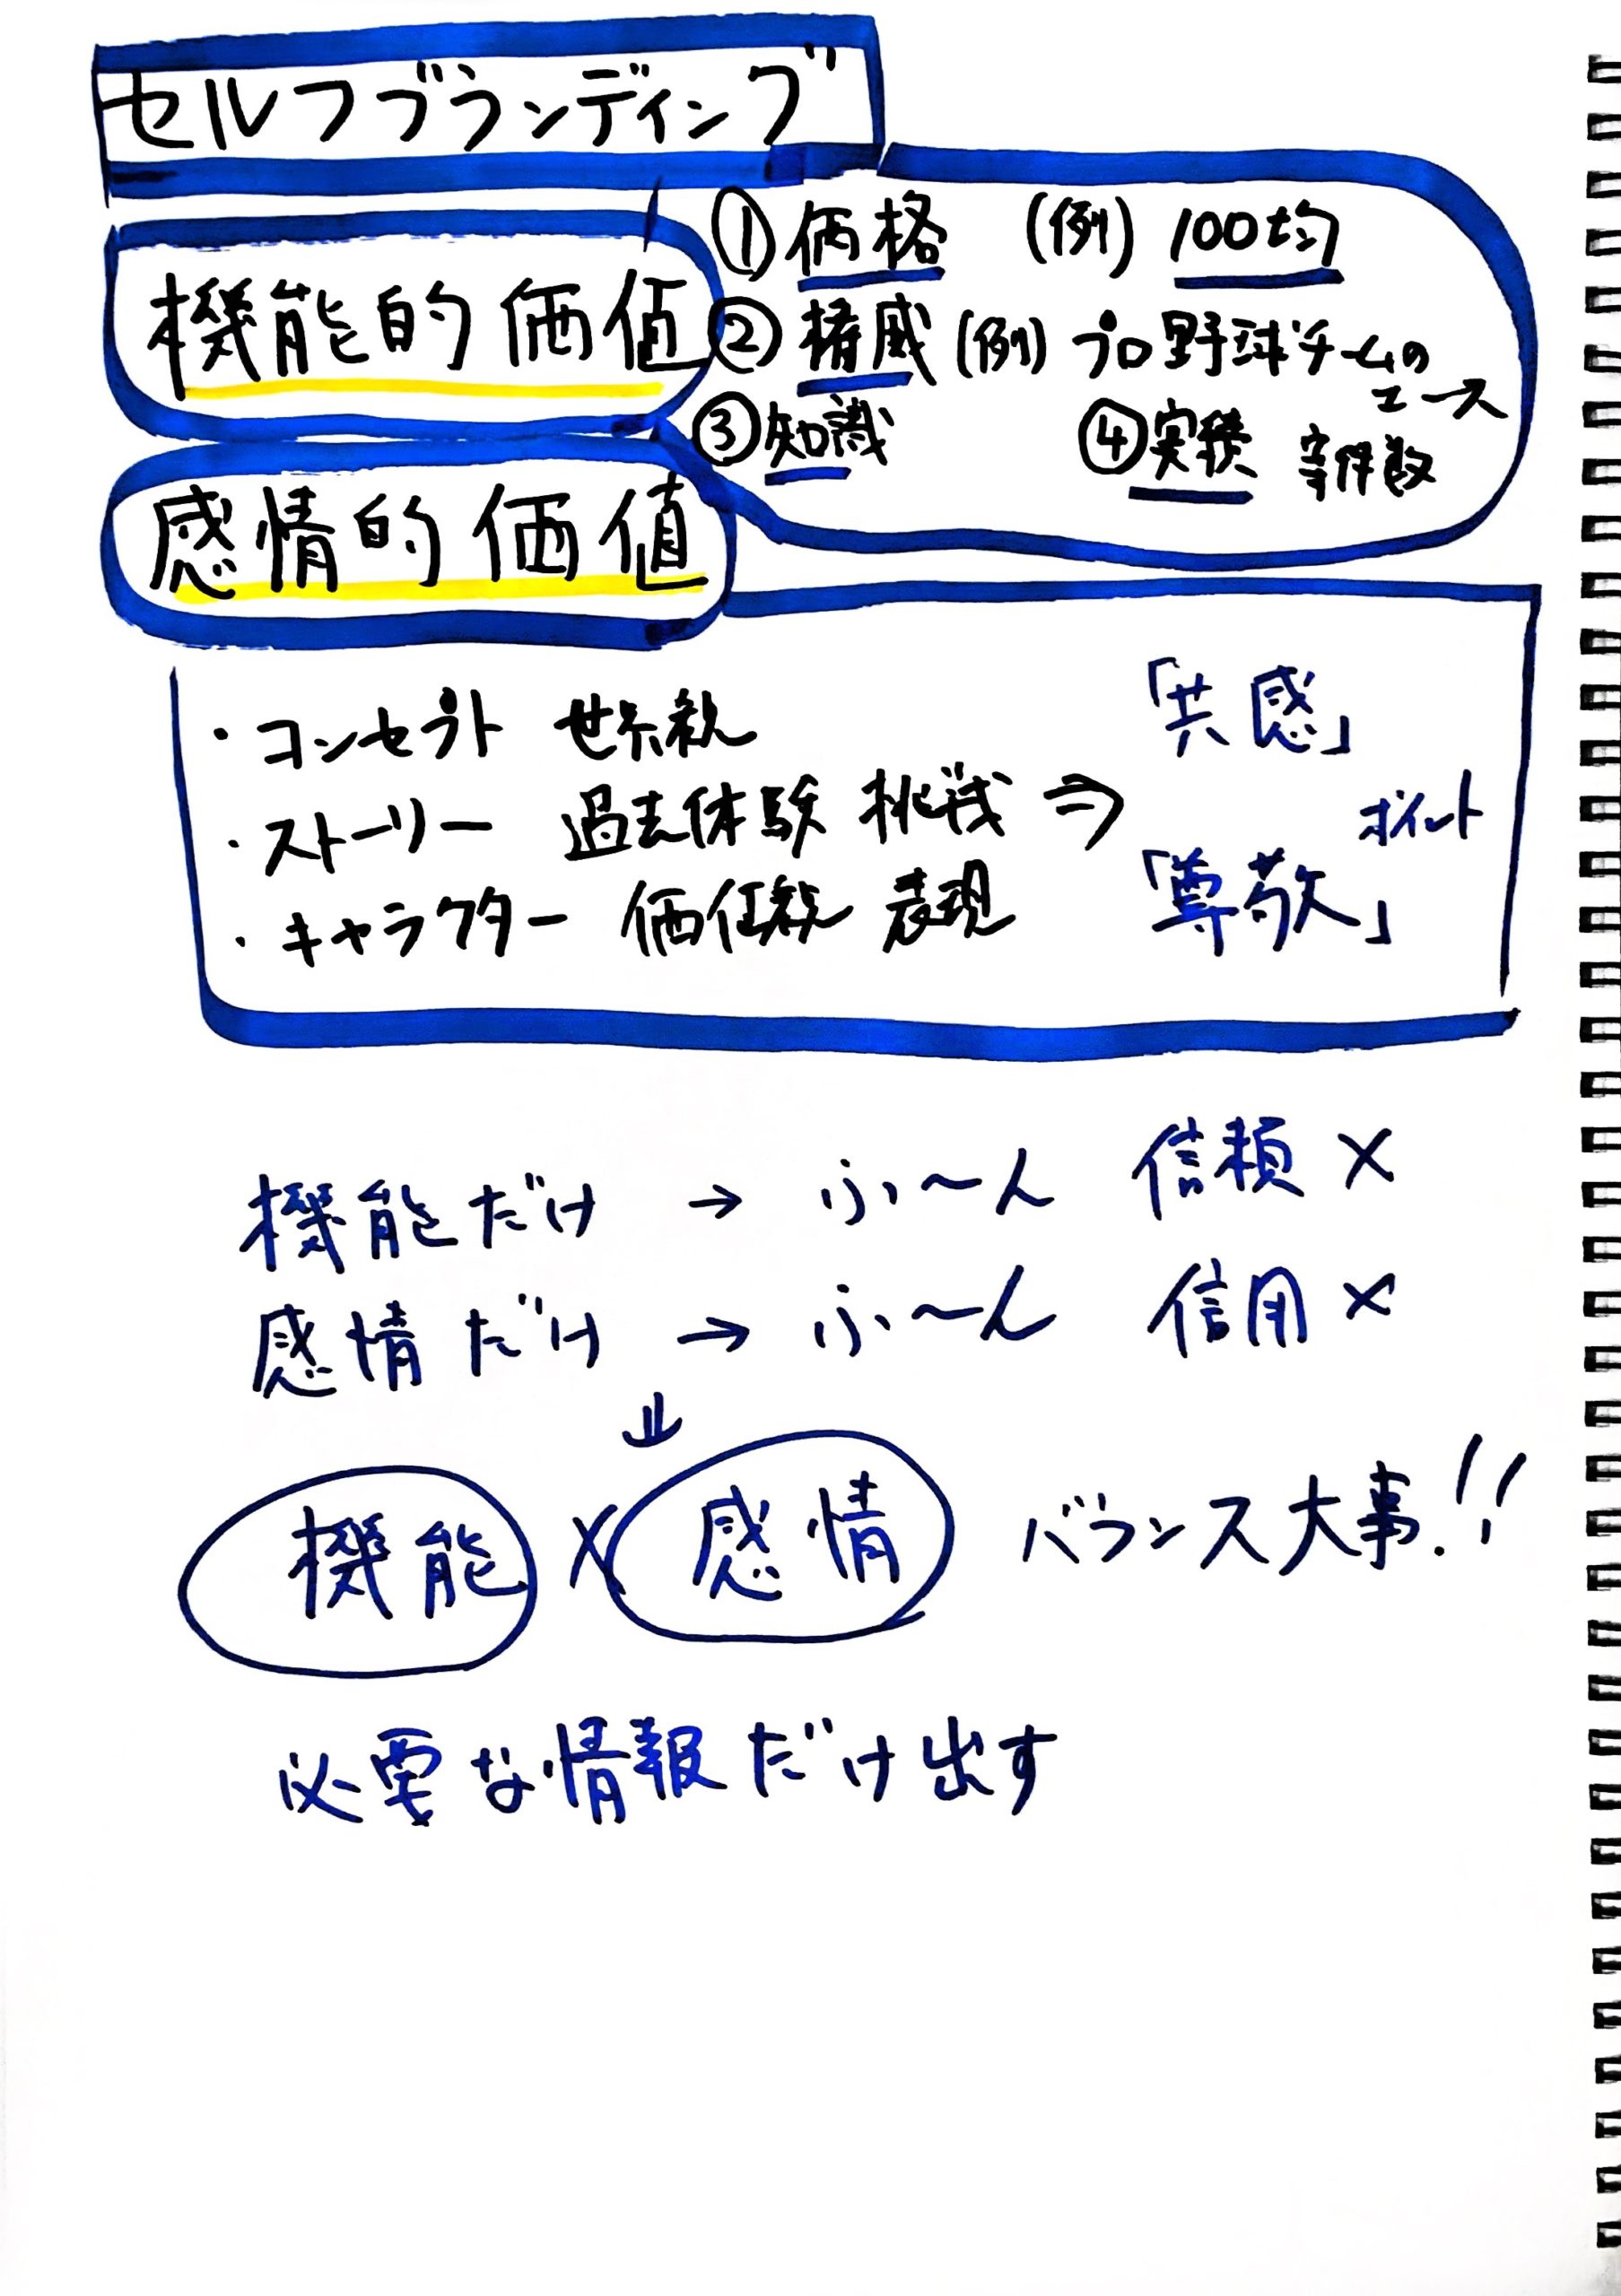 セルフブランディング
機能的価値
①価格 (例) 100均
②権威 (例) プロ野球チームの
エース
③知識 ④実績 件数
感情的価値
・コンセプト 世界観
「共感」
・ストーリー 過去体験 挑戦 ⇒
ポイント
・キャラクター 価値観 表現 「尊敬」
機能だけ → ふ〜ん 信頼 ×
感情だけ → ふ〜ん 信用 ×
⇓
機能 × 感情 バランス大事.!!
必要な情報だけ出す